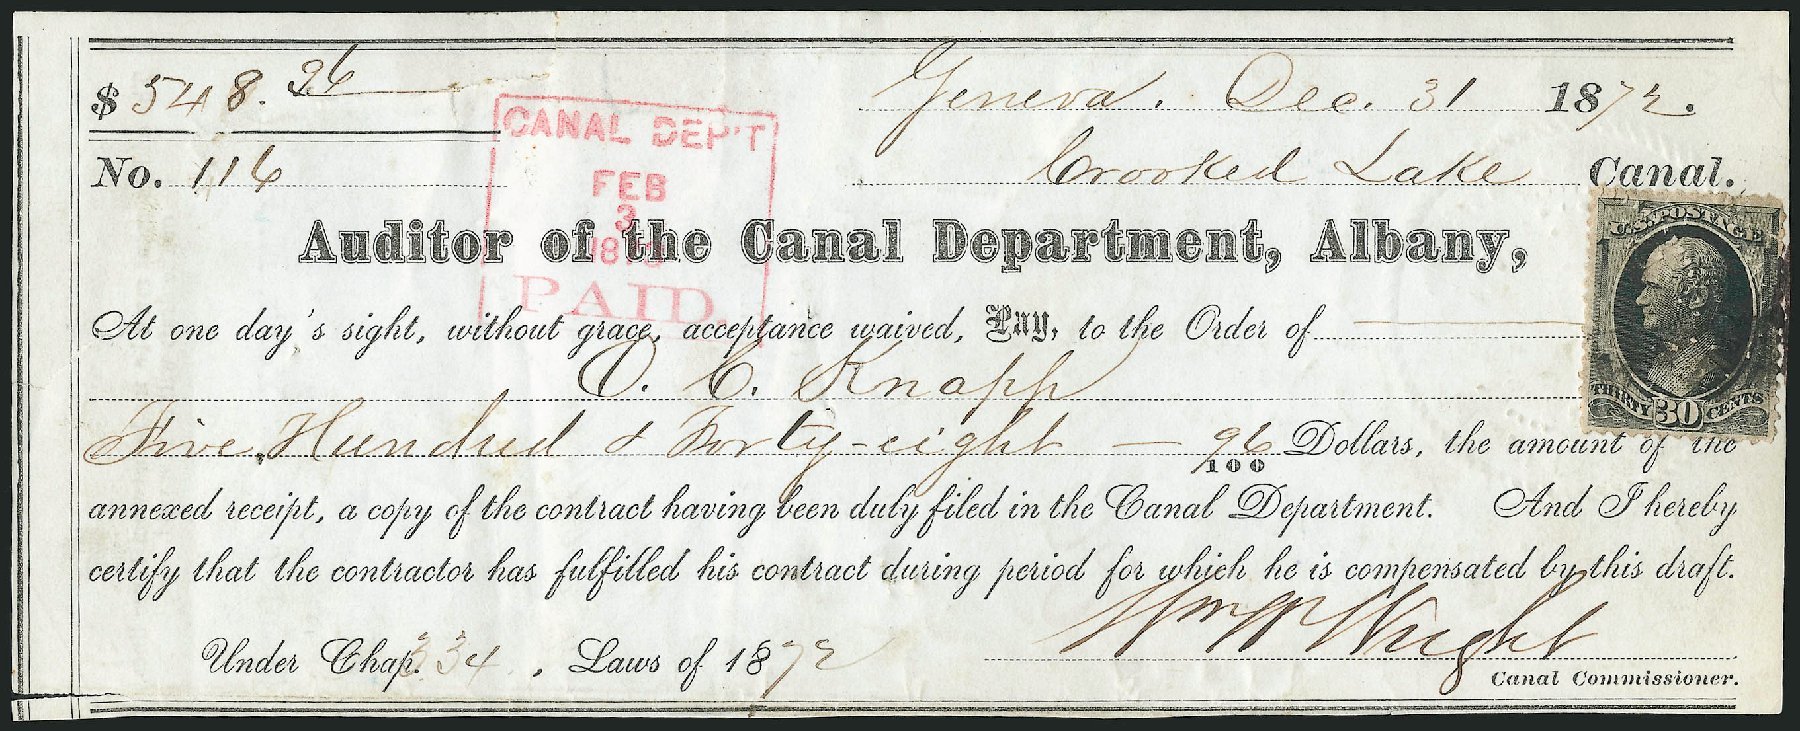 $ 548.96
Geneva. Dec. 31 1872.
No. 116
Crooked Lake Canal.
CANAL DEP'T
FEB
3
PAID.
Auditor of the Canal Department, Albany,
At one day's sight, without grace, acceptance waived, Pay, to the Order of
O. C. Knapp
Five Hundred & Forty-eight — 96/100 Dollars, the amount of the
annexed receipt, a copy of the contract having been duly filed in the Canal Department. And I hereby
certify that the contractor has fulfilled his contract during period for which he is compensated by this draft.
Wm W Wright
Under Chap. 334, Laws of 1872
Canal Commissioner.
U.S. POSTAGE
THIRTY 30 CENTS